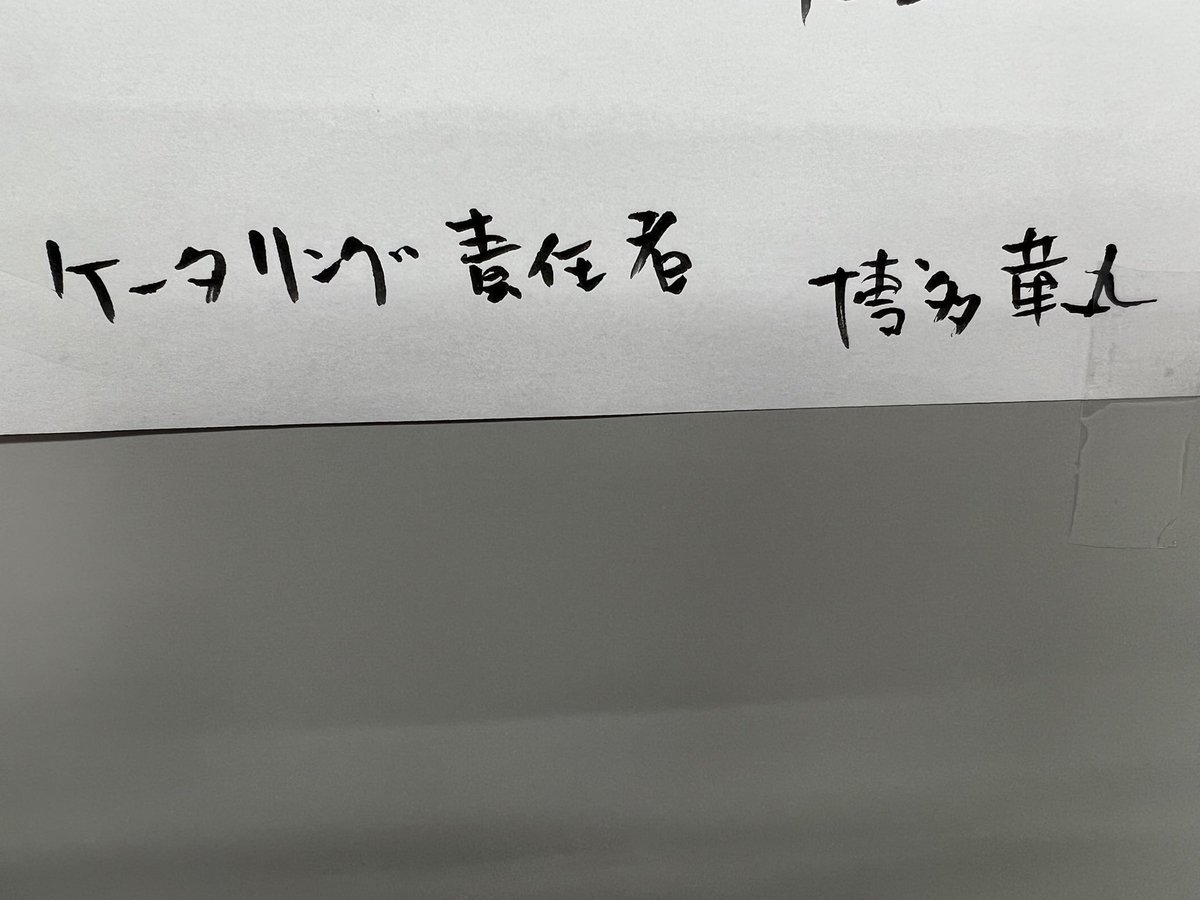 ケータリング責任者 博多華丸